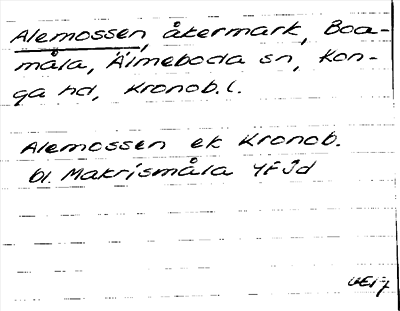 Alemossen, åkermark, Boa-
måla, Älmeboda sn, Kon-
ga hd, Kronob. l.
Alemossen ek Kronob.
bl. Makrismåla 4F Jd